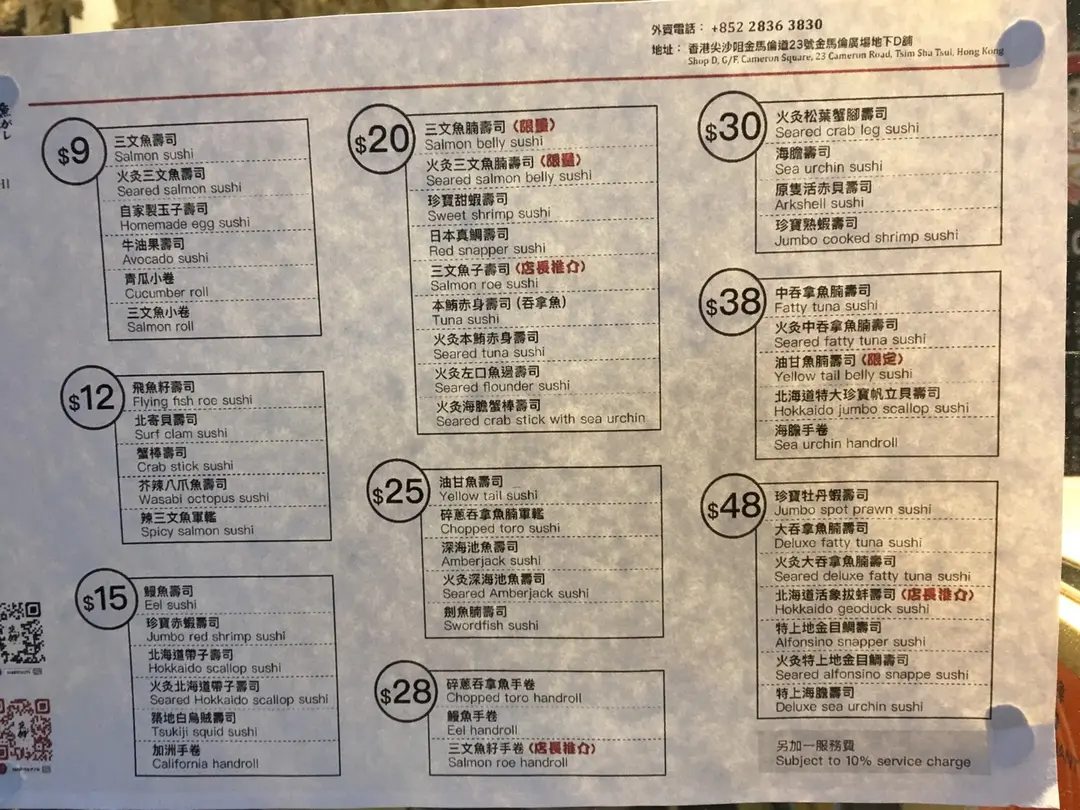 外賣電話： +852 2836 3830
地址： 香港尖沙咀金馬倫道23號金馬倫廣場地下D舖
Shop D, G/F, Cameron Square, 23 Cameron Road, Tsim Sha Tsui, Hong Kong
$9
三文魚壽司
Salmon sushi
火灸三文魚壽司
Seared salmon sushi
自家製玉子壽司
Homemade egg sushi
牛油果壽司
Avocado sushi
青瓜小卷
Cucumber roll
三文魚小卷
Salmon roll
$12
飛魚籽壽司
Flying fish roe sushi
北寄貝壽司
Surf clam sushi
蟹棒壽司
Crab stick sushi
芥辣八爪魚壽司
Wasabi octopus sushi
辣三文魚軍艦
Spicy salmon sushi
$15
鰻魚壽司
Eel sushi
珍寶赤蝦壽司
Jumbo red shrimp sushi
北海道帶子壽司
Hokkaido scallop sushi
火灸北海道帶子壽司
Seared Hokkaido scallop sushi
築地白烏賊壽司
Tsukiji squid sushi
加洲手卷
California handroll
$20
三文魚腩壽司（限量）
Salmon belly sushi
火灸三文魚腩壽司（限量）
Seared salmon belly sushi
珍寶甜蝦壽司
Sweet shrimp sushi
日本真鯛壽司
Red snapper sushi
三文魚子壽司（店長推介）
Salmon roe sushi
本鮪赤身壽司 (吞拿魚)
Tuna sushi
火灸本鮪赤身壽司
Seared tuna sushi
火灸左口魚邊壽司
Seared flounder sushi
火灸海膽蟹棒壽司
Seared crab stick with sea urchin
$25
油甘魚壽司
Yellow tail sushi
碎蔥吞拿魚腩軍艦
Chopped toro sushi
深海池魚壽司
Amberjack sushi
火灸深海池魚壽司
Seared Amberjack sushi
劍魚腩壽司
Swordfish sushi
$28
碎蔥吞拿魚手卷
Chopped toro handroll
鰻魚手卷
Eel handroll
三文魚籽手卷（店長推介）
Salmon roe handroll
$30
火灸松葉蟹腳壽司
Seared crab leg sushi
海膽壽司
Sea urchin sushi
原隻活赤貝壽司
Arkshell sushi
珍寶熟蝦壽司
Jumbo cooked shrimp sushi
$38
中吞拿魚腩壽司
Fatty tuna sushi
火灸中吞拿魚腩壽司
Seared fatty tuna sushi
油甘魚腩壽司（限定）
Yellow tail belly sushi
北海道特大珍寶帆立貝壽司
Hokkaido jumbo scallop sushi
海膽手卷
Sea urchin handroll
$48
珍寶牡丹蝦壽司
Jumbo spot prawn sushi
大吞拿魚腩壽司
Deluxe fatty tuna sushi
火灸大吞拿魚腩壽司
Seared deluxe fatty tuna sushi
北海道活象拔蚌壽司（店長推介）
Hokkaido geoduck sushi
特上地金目鯛壽司
Alfonsino snapper sushi
火灸特上地金目鯛壽司
Seared alfonsino snappe sushi
特上海膽壽司
Deluxe sea urchin sushi
另加一服務費
Subject to 10% service charge